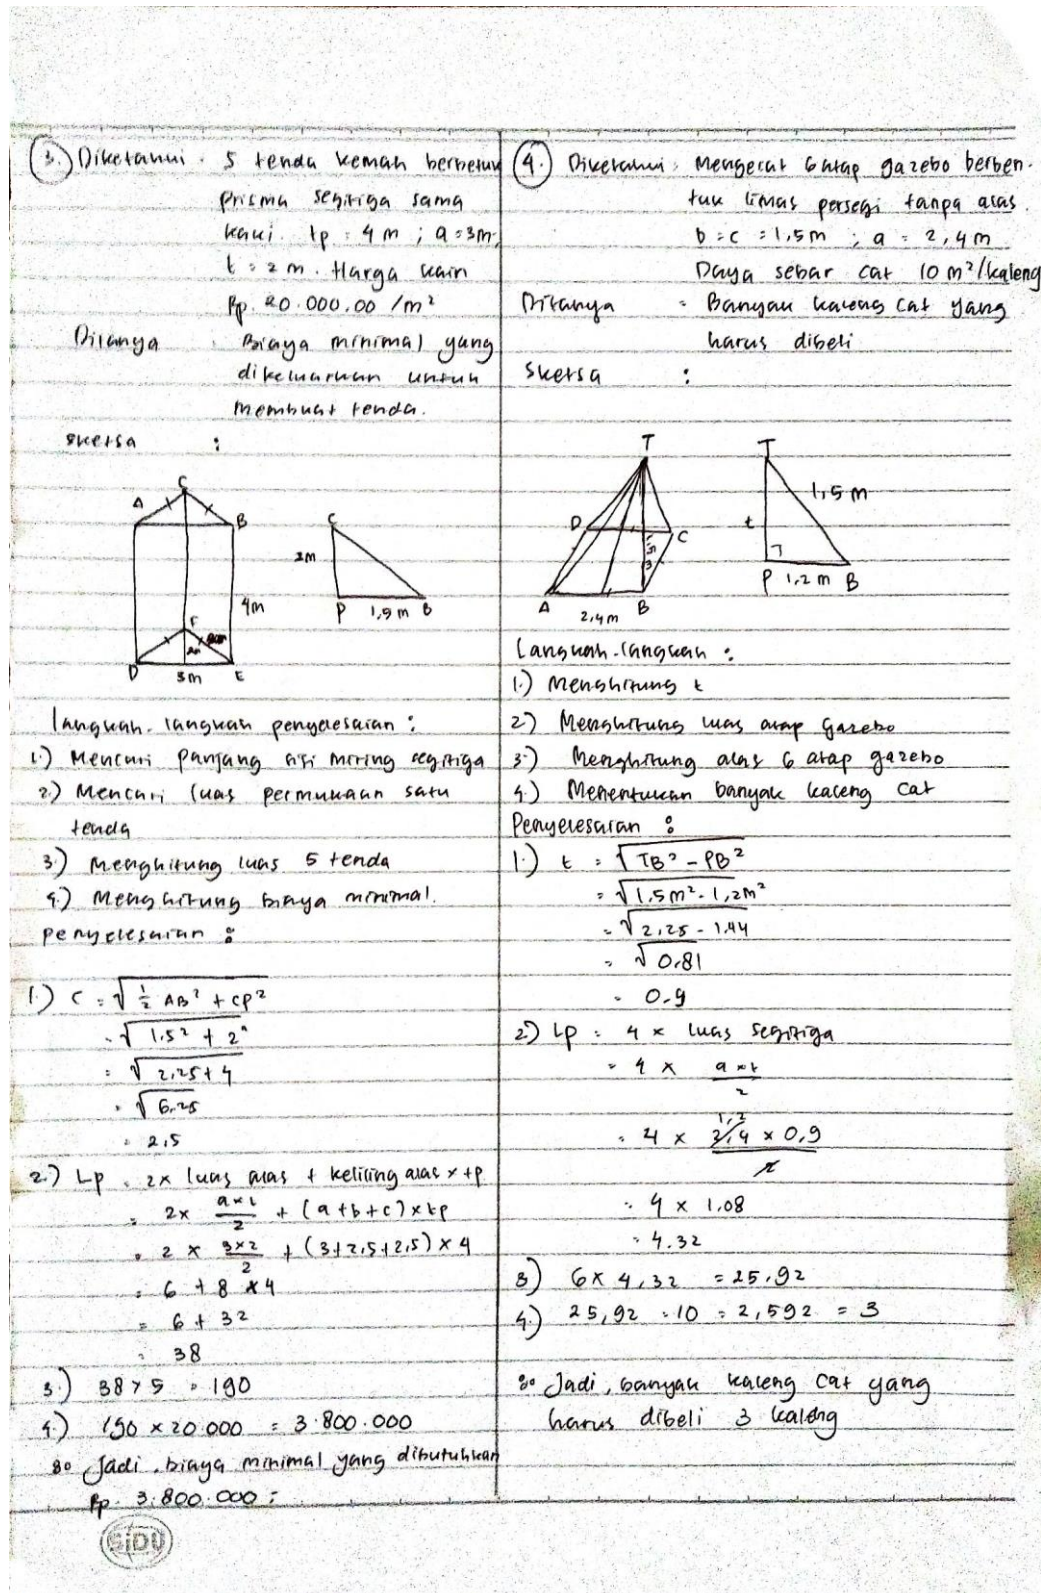 3.) Diketahui : 5 tenda kemah berbentuk
prisma segitiga sama
kaki. tp = 4 m ; a = 3m;
t = 2 m. Harga kain
Rp. 20.000,00 /m²
Ditanya : Biaya minimal yang
dikeluarkan untuk
membuat tenda.
sketsa :
C
A
B
4m
F
2m
D
3m
E
C
2m
P 1,5 m B
langkah-langkah penyelesaian :
1.) Mencari panjang sisi miring segitiga
2.) Mencari luas permukaan satu
tenda
3.) Menghitung luas 5 tenda
4.) Menghitung biaya minimal.
penyelesaian :
1.) C = √½ AB² + CP²
= √1.5² + 2²
= √2,25 + 4
= √6,25
= 2,5
2.) Lp = 2x luas alas + keliling alas x tp
= 2x a×t/2 + (a+b+c) x tp
= 2 x 3x2/2 + (3+2,5+2,5) x 4
= 6 + 8 x 4
= 6 + 32
= 38
3.) 38 x 5 = 190
4.) 190 x 20.000 = 3.800.000
∴ Jadi, biaya minimal yang dibutuhkan
Rp. 3.800.000 ;
SiDU
4.) Diketahui : Mengecat 6 atap gazebo berben-
tuk limas persegi tanpa alas.
b = c = 1,5 m ; a = 2,4 m
Daya sebar cat 10 m²/kaleng
Ditanya = Banyak kaleng cat yang
harus dibeli
Sketsa :
T
D
C
A
B
2,4m
T
1,5 m
t
P 1,2 m B
Langkah-langkah :
1.) Menghitung t
2.) Menghitung luas atap gazebo
3.) Menghitung alas 6 atap gazebo
4.) Menentukan banyak kaleng cat
Penyelesaian :
1.) t = √TB² - PB²
= √1,5m² - 1,2m²
= √2,25 - 1,44
= √0,81
= 0,9
2.) Lp = 4 x luas segitiga
= 4 x a×t/2
1,2
= 4 x 2,4 x 0,9/2
= 4 x 1,08
= 4.32
3) 6 x 4,32 = 25,92
4.) 25,92 : 10 = 2,592 = 3
∴ Jadi, banyak kaleng cat yang
harus dibeli 3 kaleng